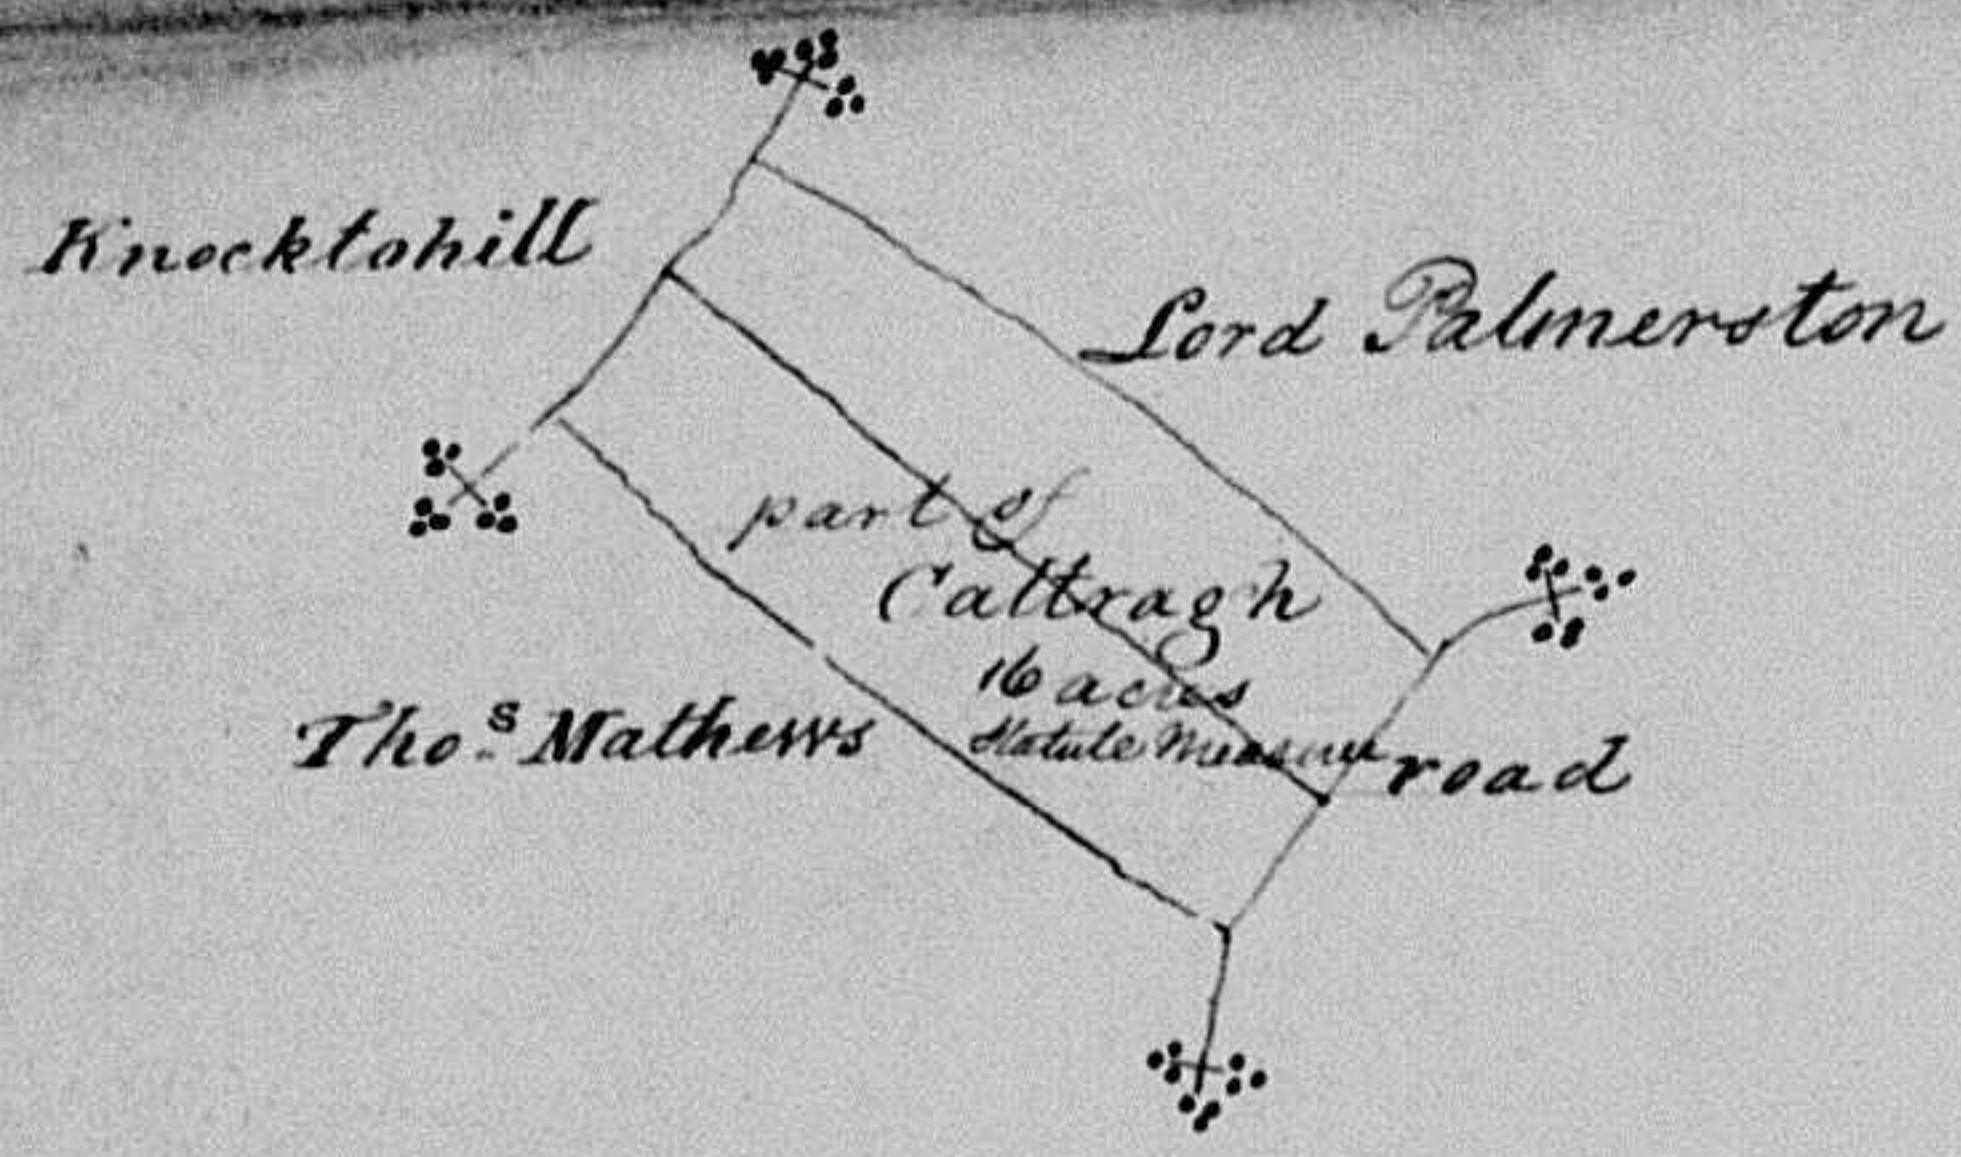 Knocktohill
Lord Palmerston
part of
Caltragh
16 acres
Statute Measure
Tho.s Mathews
road